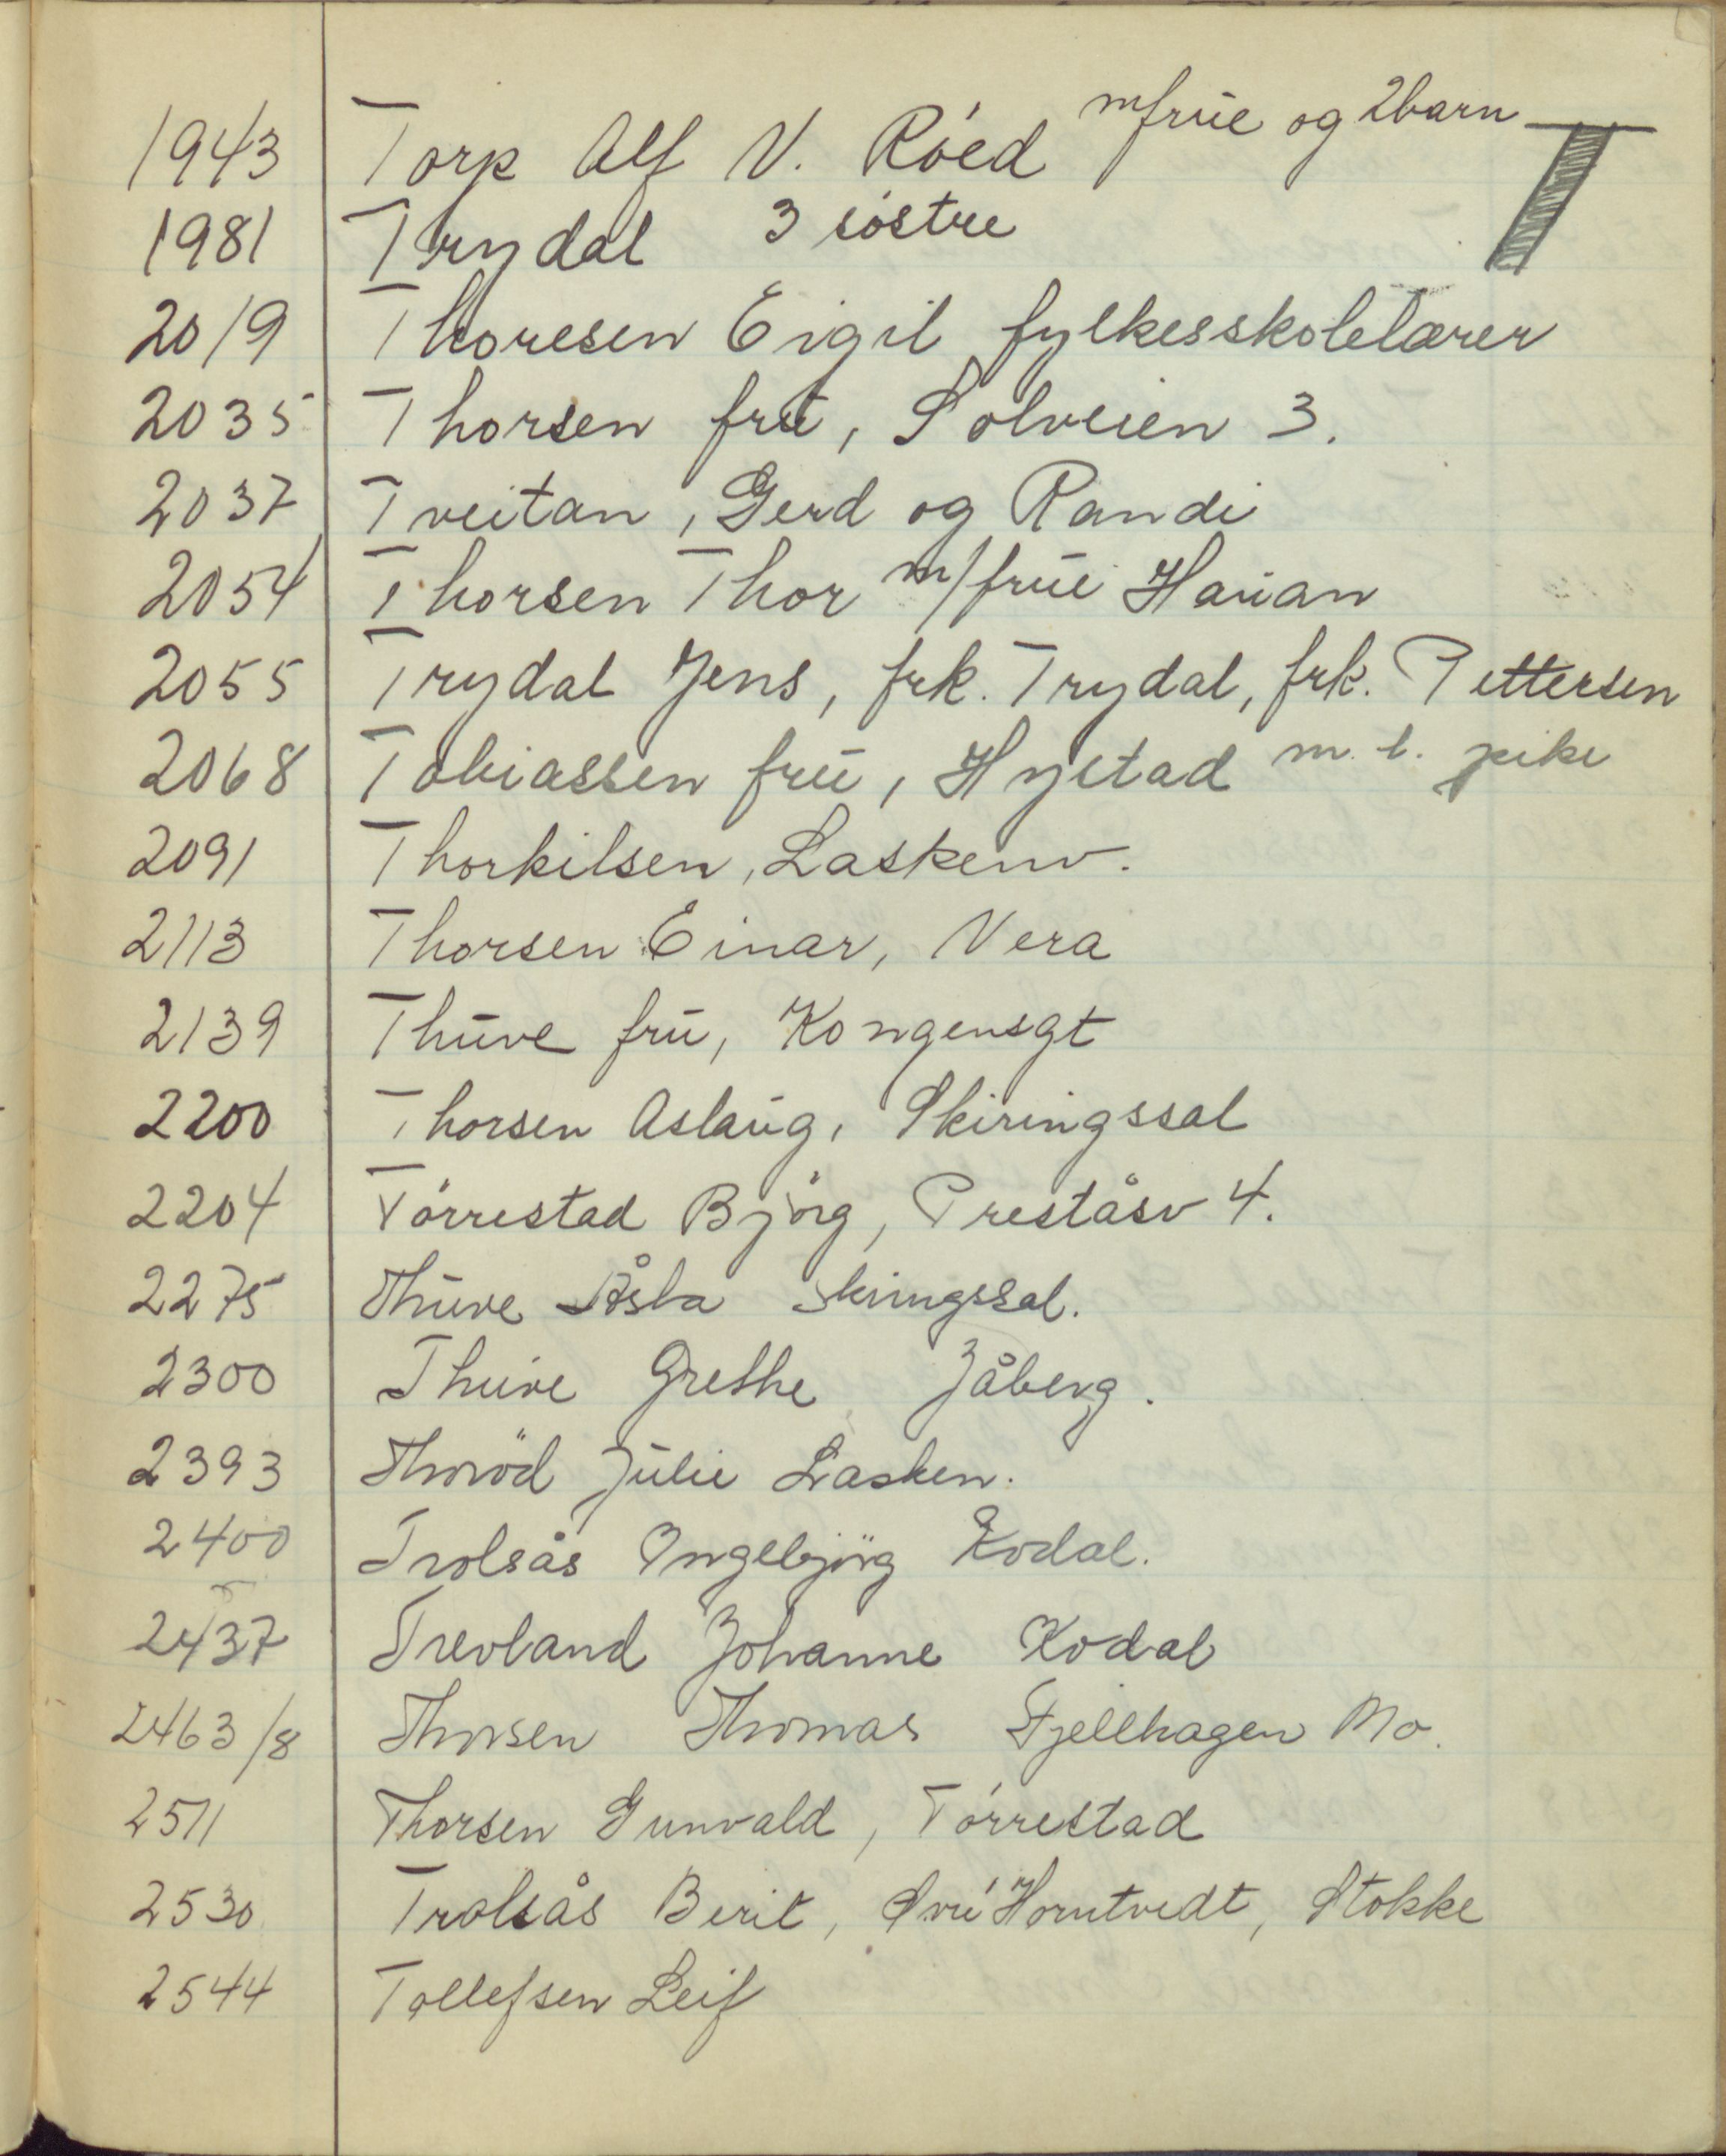 T
1943 Torp Alf V. Róed m/frue og 2 barn
1981 Trydal 3 sóstre
2019 Thoresen Eigil fylkesskolelærer
2035 Thorsen fru, Solveien 3.
2037 Tveitan, Gerd og Randi
2054 Thorsen Thor m/frue Hauan
2055 Trydal Jens, frk. Trydal, frk. Pettersen
2068 Tobiassen fru, Hystad m. l. pike
2091 Thorkilsen, Laskenv.
2113 Thorsen Einar, Vera
2139 Thuve fru, Kongensgt
2200 Thorsen Aslaug, Skiringssal
2204 Tórrestad Bjórg, Preståsv 4.
2275 Thuve Åsta Skiringssal.
2300 Thuve Grethe Jåberg.
2393 Thoröd Julie Lasken.
2400 Trolsås Ingebjörg Kodal.
2437 Trevland Johanne Kodal
2463/8 Thorsen Thomas Fjellhagen Mo.
2511 Thorsen Gunvald, Tórrestad
2530 Trolsås Berit, Horntvedt, Stokke
2544 Tollefsen Leif